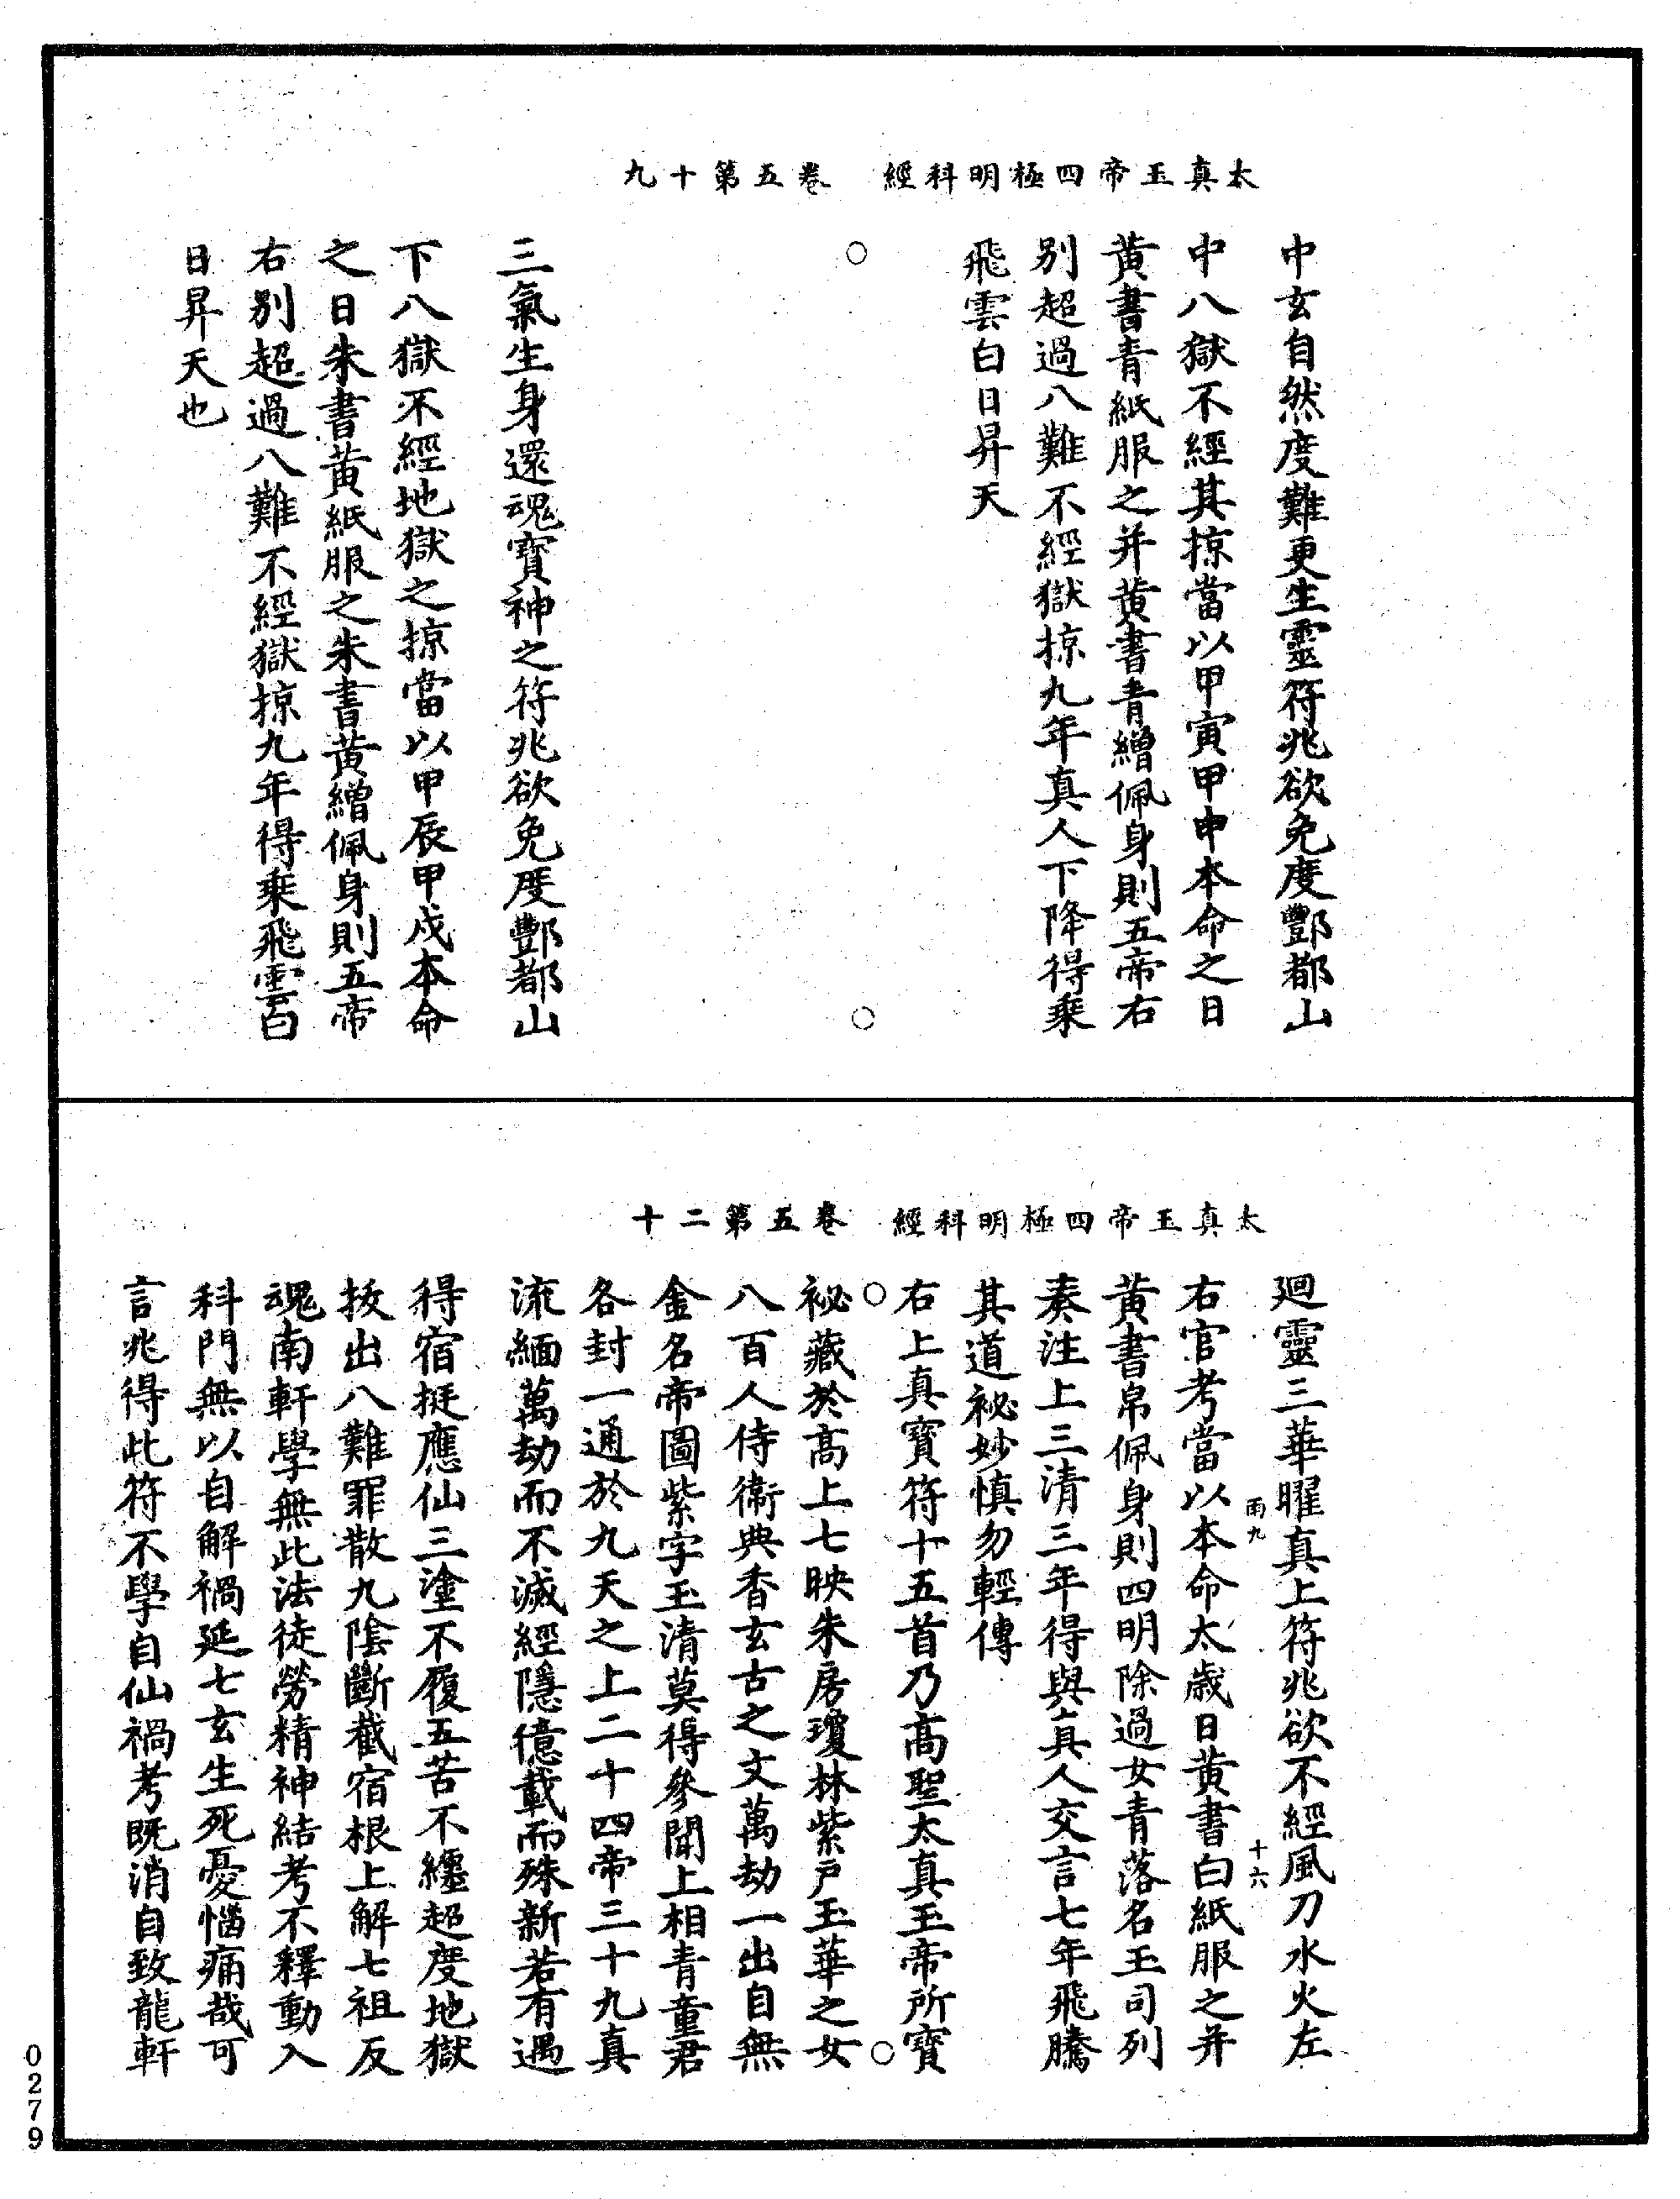 太真玉帝四極明科經　卷五第十九
中玄自然度難更生靈符兆欲免度酆都山
中八獄不經其掠當以甲寅甲申本命之日
黃書青紙服之并黃書青繒佩身則五帝右
別超過八難不經獄掠九年真人下降得乘
飛雲白日昇天
○　○
三氣生身還魂寶神之符兆欲免度酆都山
下八獄不經地獄之掠當以甲辰甲戌本命
之日朱書黃紙服之朱書黃繒佩身則五帝
右別超過八難不經獄掠九年得乘飛雲白
日昇天也
太真玉帝四極明科經　卷五第二十
廻靈三華曜真上符兆欲不經風刀水火左
雨九　十六
右官考當以本命太歲日黃書白紙服之并
黃書帛佩身則四明除過女青落名玉司列
奏注上三清三年得與真人交言七年飛騰
其道祕妙慎勿輕傳
右上真寶符十五首乃高聖太真玉帝所寶
○　○
祕藏於高上七映朱房瓊林紫戶玉華之女
八百人侍衛典香玄古之文萬劫一出自無
金名帝圖紫字玉清莫得參聞上相青童君
各封一通於九天之上二十四帝三十九真
流緬萬劫而不滅經隱億載而殊新若有遇
得宿挺應仙三塗不履五苦不纏超度地獄
拔出八難罪散九陰斷截宿根上解七祖反
魂南軒學無此法徒勞精神結考不釋動入
科門無以自解禍延七玄生死憂惱痛哉可
言兆得此符不學自仙禍考既消自致龍軒
0279